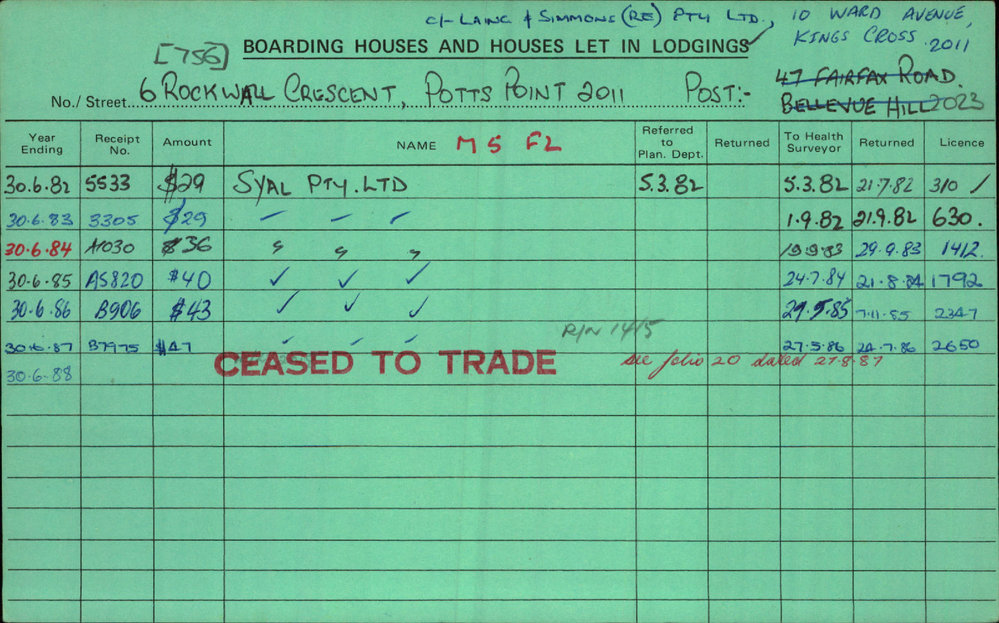 C/- LAING & SIMMONS (RE) PTY LTD., 10 WARD AVENUE,
KINGS CROSS. 2011
[756] BOARDING HOUSES AND HOUSES LET IN LODGINGS ✓
47 FAIRFAX ROAD.
No./Street 6 ROCKWALL CRESCENT, POTTS POINT 2011 POST:- BELLEVUE HILL 2023
Year Ending Receipt No. Amount NAME M S FL Referred to Plan. Dept. Returned To Health Surveyor Returned Licence
30.6.82 5533 $29 SYAL PTY. LTD 5.3.82 5.3.82 21.7.82 310 /
30.6.83 3305 $29 – – – 1.9.82 21.9.82 630.
30.6.84 A1030 $36 " " " 19.9.83 29.9.83 1412.
30.6.85 A5820 $40 ✓ ✓ ✓ 24.7.84 21.8.84 1792
30.6.86 B906 $43 ✓ ✓ ✓ 29.5.85 7.11.85 2347
R/N 1415
30.6.87 B7975 $47 ✓ ✓ ✓ 27.5.86 24.7.86 2650
30.6.88 CEASED TO TRADE see folio 20 dated 27.8.87